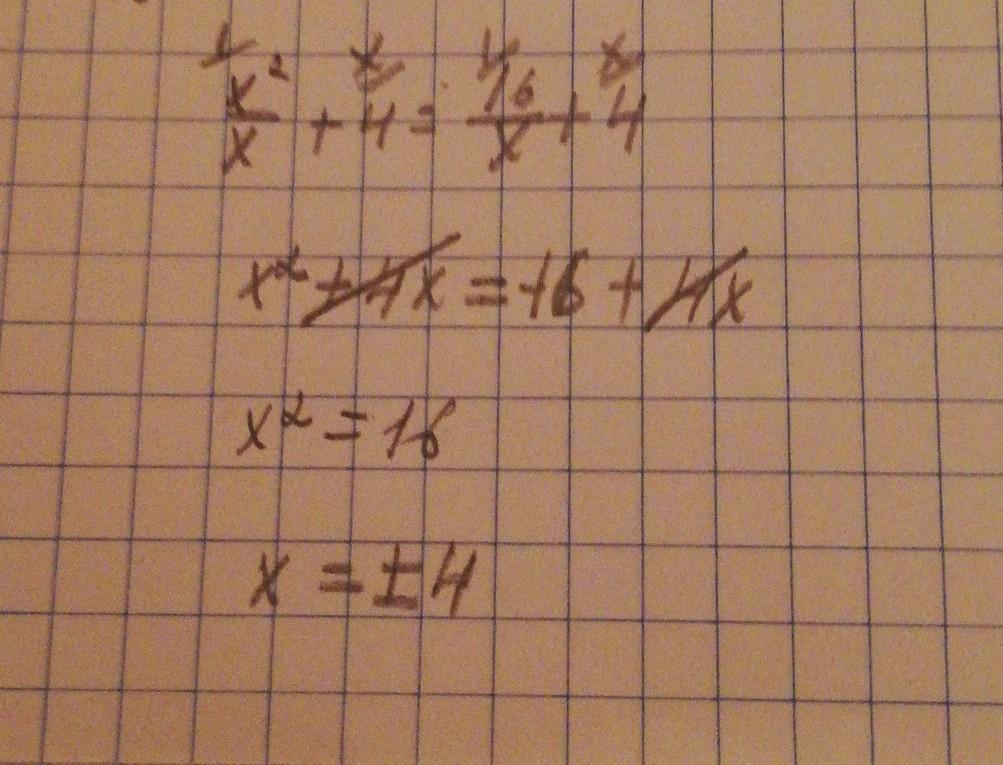 1/ x/ 1/ x/
x²/x + 4 = 16/x + 4
x² + 4x = 16 + 4x
x² = 16
x = ±4